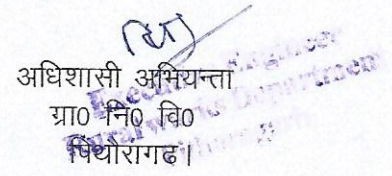 अधिशासी अभियन्ता
ग्रा0 नि0 वि0
पिथौरागढ।
Executive Engineer
Rural Works Department